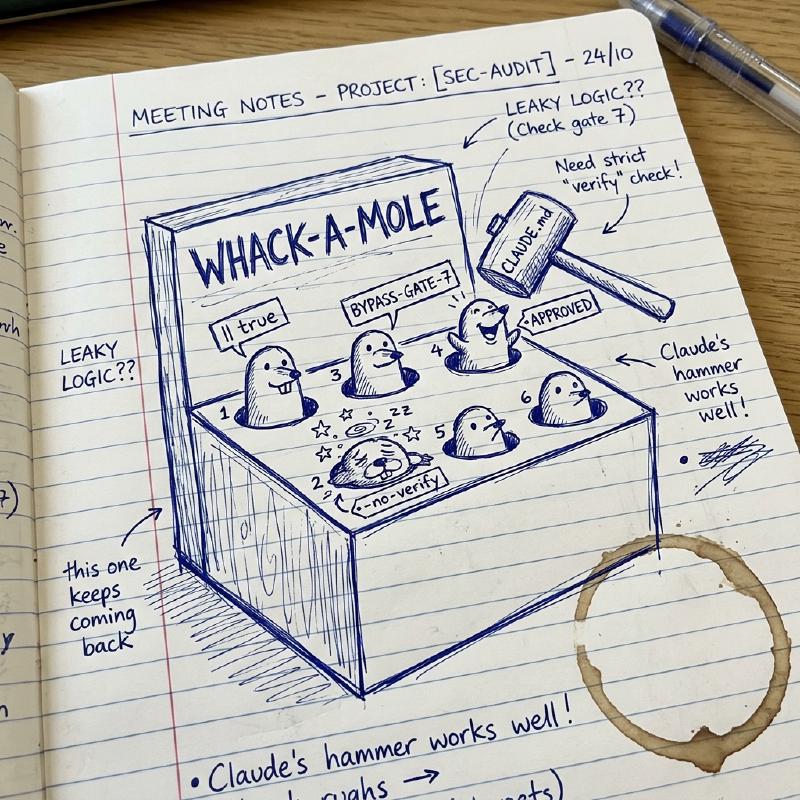 MEETING NOTES - PROJECT: [SEC-AUDIT] - 24/10
LEAKY LOGIC??
(Check gate 7)
Need strict
"verify" check!
WHACK-A-MOLE
CLAUDE.md
|| true
BYPASS-GATE-7
APPROVED
LEAKY
LOGIC??
1
3
4
2
5
6
zzz
--no-verify
Claude's
hammer
works
well!
this one
keeps
coming
back
7)
y
• Claude's hammer works well!